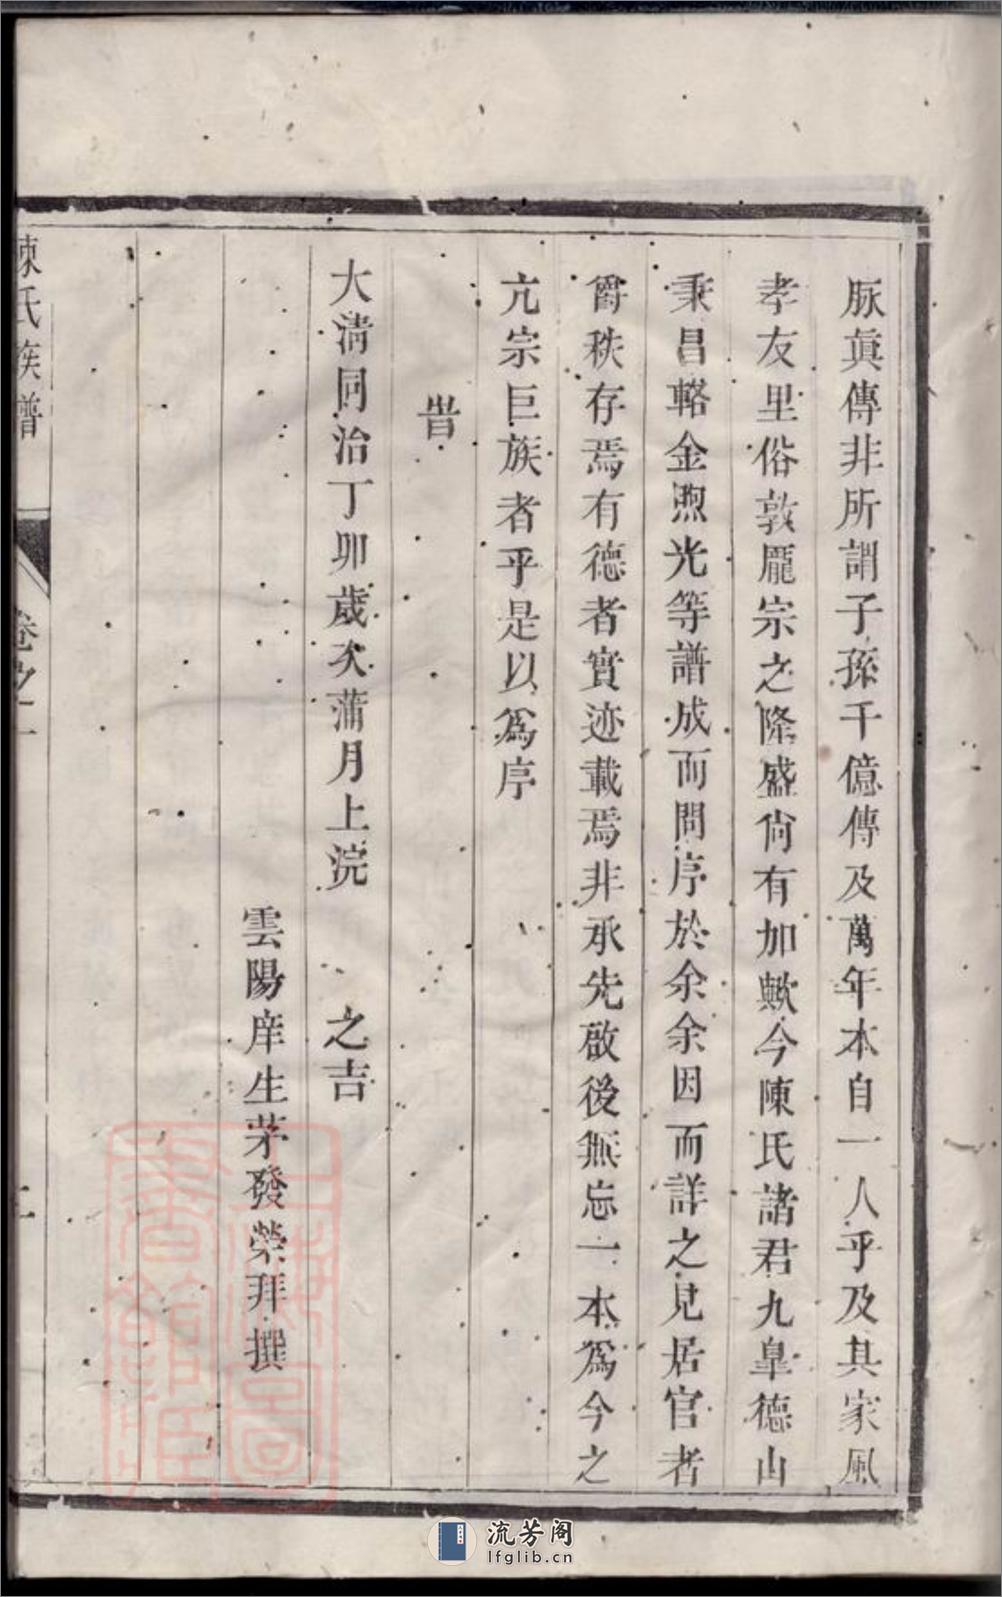 脉眞傳非所謂子孫千億傳及萬年本自一人乎及其家風
孝友里俗敦龐宗之隆盛尙有加歟今陳氏諸君九臯德山
秉昌輅金煦光等譜成而問序於余余因而詳之見居官者
爵秩存焉有德者實迹載焉非承先啟後無忘一本爲今之
亢宗巨族者乎是以爲序
旹
大淸同治丁卯歲次蒲月上浣　之吉
雲陽庠生茅發榮拜撰
陳氏族譜
卷之一
上海圖書館藏
流芳阁
lfglib.cn